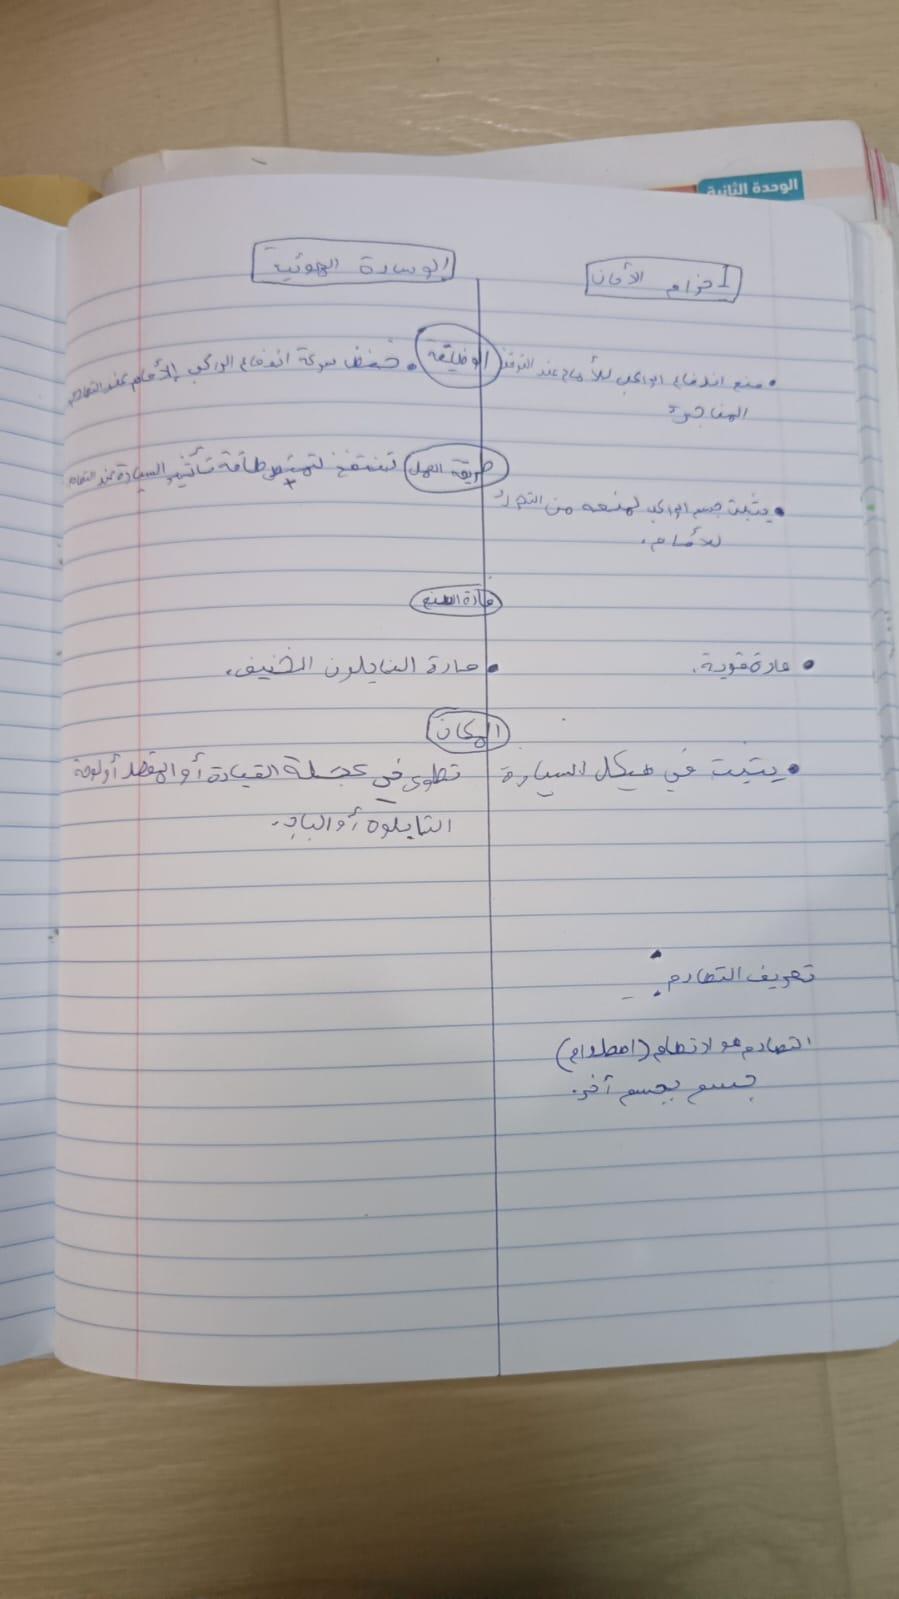 الوحدة الثانية
حزام الأمان
الوسادة الهوئية
الوظيفة
منع اندفاع الراكب للأمام عند التوقف
المفاجئ
خفض سرعة اندفاع الراكب إلأمام عند التصادم
طريقة العمل
يثبت جسم الراكب لمنعه من التحرك
للأمام.
تنتفخ لتمتص طاقة تأثير السيارة عند التصادم
مادة الصنع
مادة قوية.
مادة النايلون الخفيف.
المكان
يثبت في هيكل السيارة
تطوى في عجلة القيادة أو المقعد أو لوحة
التابلوه أو الباب.
تعريف التصادم:
التصادم هو ارتطام (اصطدام)
جسم بجسم آخر.